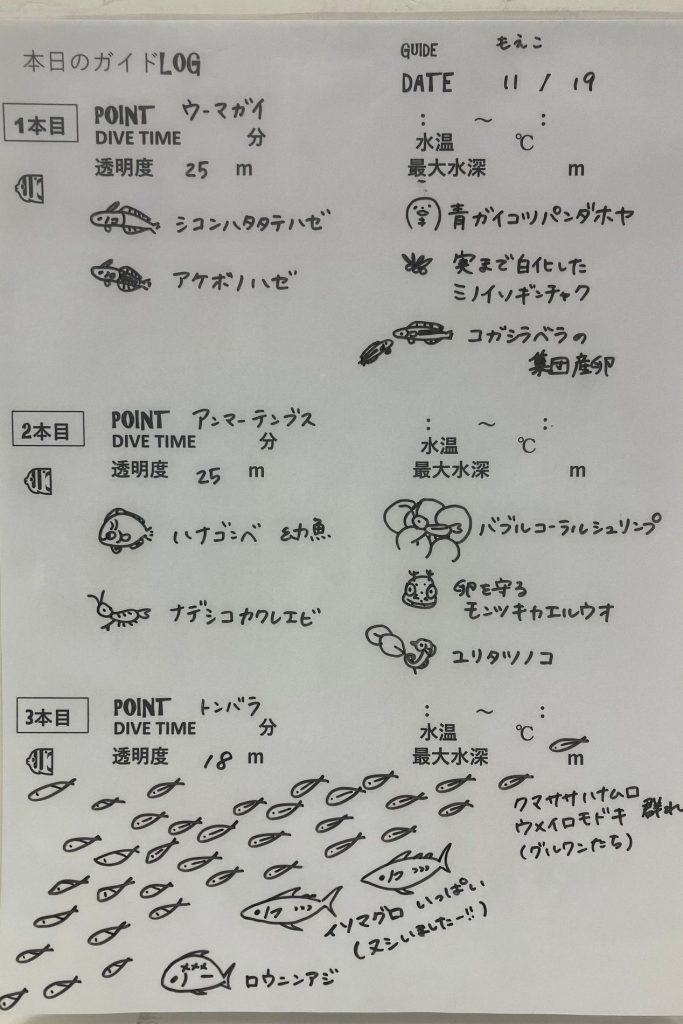 本日のガイドLOG
GUIDE もえこ
DATE 11 / 19
1本目
POINT ウーマガイ
DIVE TIME 分
: ~ :
水温 ℃
透明度 25 m
最大水深 m
シコンハタタテハゼ
アケボノハゼ
青ガイコツパンダホヤ
実まで白化した
ミノイソギンチャク
コガシラベラの
集団産卵
2本目
POINT アンマーテンブス
DIVE TIME 分
: ~ :
水温 ℃
透明度 25 m
最大水深 m
ハナゴンベ 幼魚
ナデシコカクレエビ
バブルコーラルシュリンプ
卵を守る
モンツキカエルウオ
ユリタツノコ
3本目
POINT トンバラ
DIVE TIME 分
: ~ :
水温 ℃
透明度 18 m
最大水深 m
クマササハナムロ
ウメイロモドキ 群れ
(グルクンたち)
イソマグロ いっぱい
(ヌシいましたー!!)
ロウニンアジ